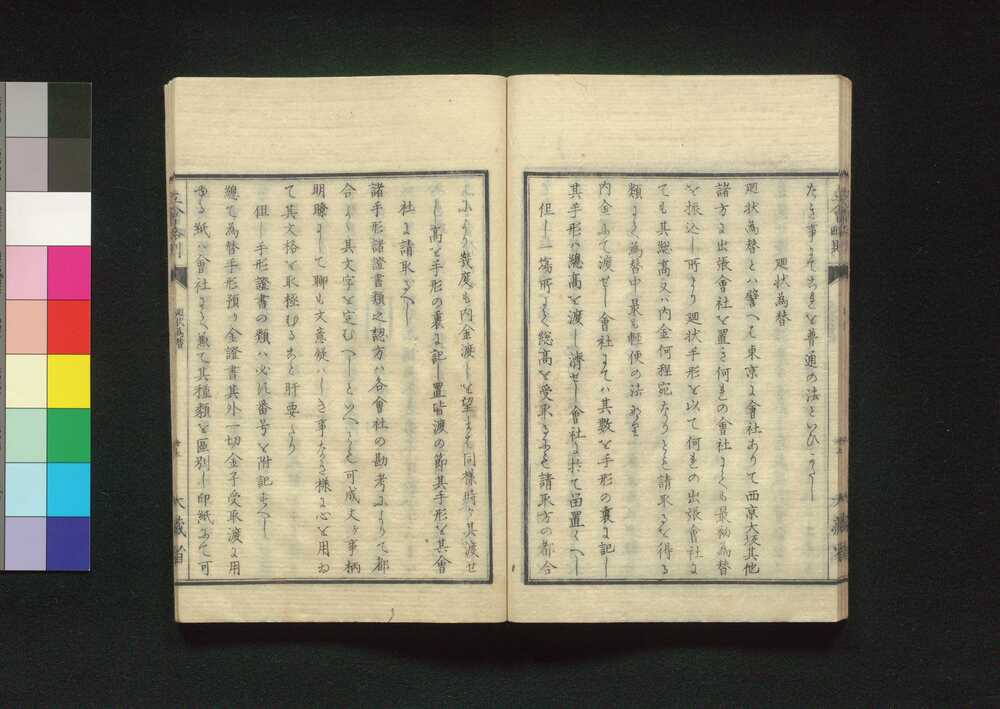 たき事にてこれを普通の法といひつべし
廻状為替
廻状為替とハ譬へて東京に會社ありて西京大坂其他
諸方に出張會社を置き何れの會社にても最初為替
を振込し所より廻状手形を以て何れの出張會社に
ても其総高又ハ内金何程宛なりとも請取るを得る
類にて為替中最も軽便の法なり
内金にて渡せし會社にてハ其數を手形の裏に記し
其手形ハ總高を渡し濟せし會社に於て留置くへし
但し一場所にて総高を受取るとも請取方の都合
によりて幾度も内金渡しを望むとも同様時々其渡せ
し高を手形の裏に記し置皆渡の節其手形を其會
社に請取るへし
諸手形諸證書類之認方ハ各會社の勘考によりて都
合よく其文字を定むへしといへとも可成丈ケ事柄
明瞭にして聊も文意疑ハしき事なき様に心を用ゐ
て其文格を取極むること肝要たり
但し手形證書の類ハ必ス番号を附記すへし
總て為替手形預り金證書其外一切金子受取渡に用
ゆる紙ハ會社にて兼て其種類を區別し印紙にて可
立會略則
廻状為替
大藏省